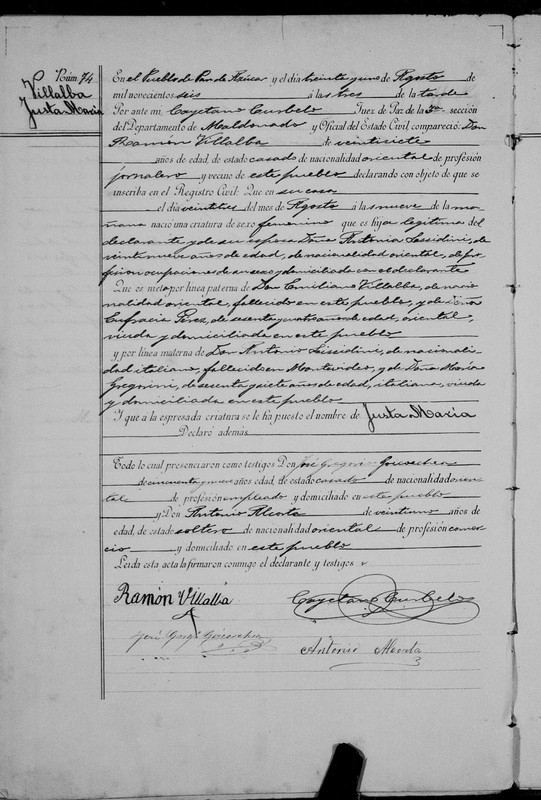 Núm 74
Villalba
Justa María
En el Pueblo de Pan de Azúcar y el día treinta y uno de Agosto de
mil novecientos seis a las tres de la tarde
Por ante mí, Cayetano Curbelo Juez de Paz de la 3ª sección
del Departamento de Maldonado y Oficial del Estado Civil, compareció: Don
Ramón Villalba de veintisiete
años de edad, de estado casado de nacionalidad oriental de profesión
jornalero y vecino de este pueblo declarando con objeto de que se
inscriba en el Registro Civil: Que en su casa
el día veintitres del mes de Agosto a las nueve de la ma-
ñana nació una criatura de sexo femenino que es hija legítima del
declarante y de su esposa Doña Antonia de
veintinueve años de edad, de nacionalidad oriental, de pro-
fesión ocupaciones de su sexo y domiciliada con el declarante
Que es nieta por línea paterna de Don Emiliano Villalba, de nacio-
nalidad oriental, fallecido en este pueblo, y de Doña
Eufracia Pérez, de sesenta y cuatro años de edad, oriental,
viuda y domiciliada en este pueblo
y por línea materna de Don Antonio de nacionali-
dad italiano, fallecido en Montevideo, y de Doña María
Gregorini, de sesenta y siete años de edad, italiana, viuda
y domiciliada en este pueblo
Y que a la espresada criatura se le ha puesto el nombre de Justa María
Declaró además
Todo lo cual presenciaron como testigos Don José Gregorio
de cincuenta y años edad, de estado casado de nacionalidad orien-
tal de profesión empleado y domiciliado en este pueblo
y Don Antonio Acosta de veintiuno años de
edad, de estado soltero de nacionalidad oriental de profesión comer-
cio y domiciliado en este pueblo
Leída esta acta la firmaron conmigo el declarante y testigos
Ramón Villalba Cayetano Curbelo
José Antonio Acosta